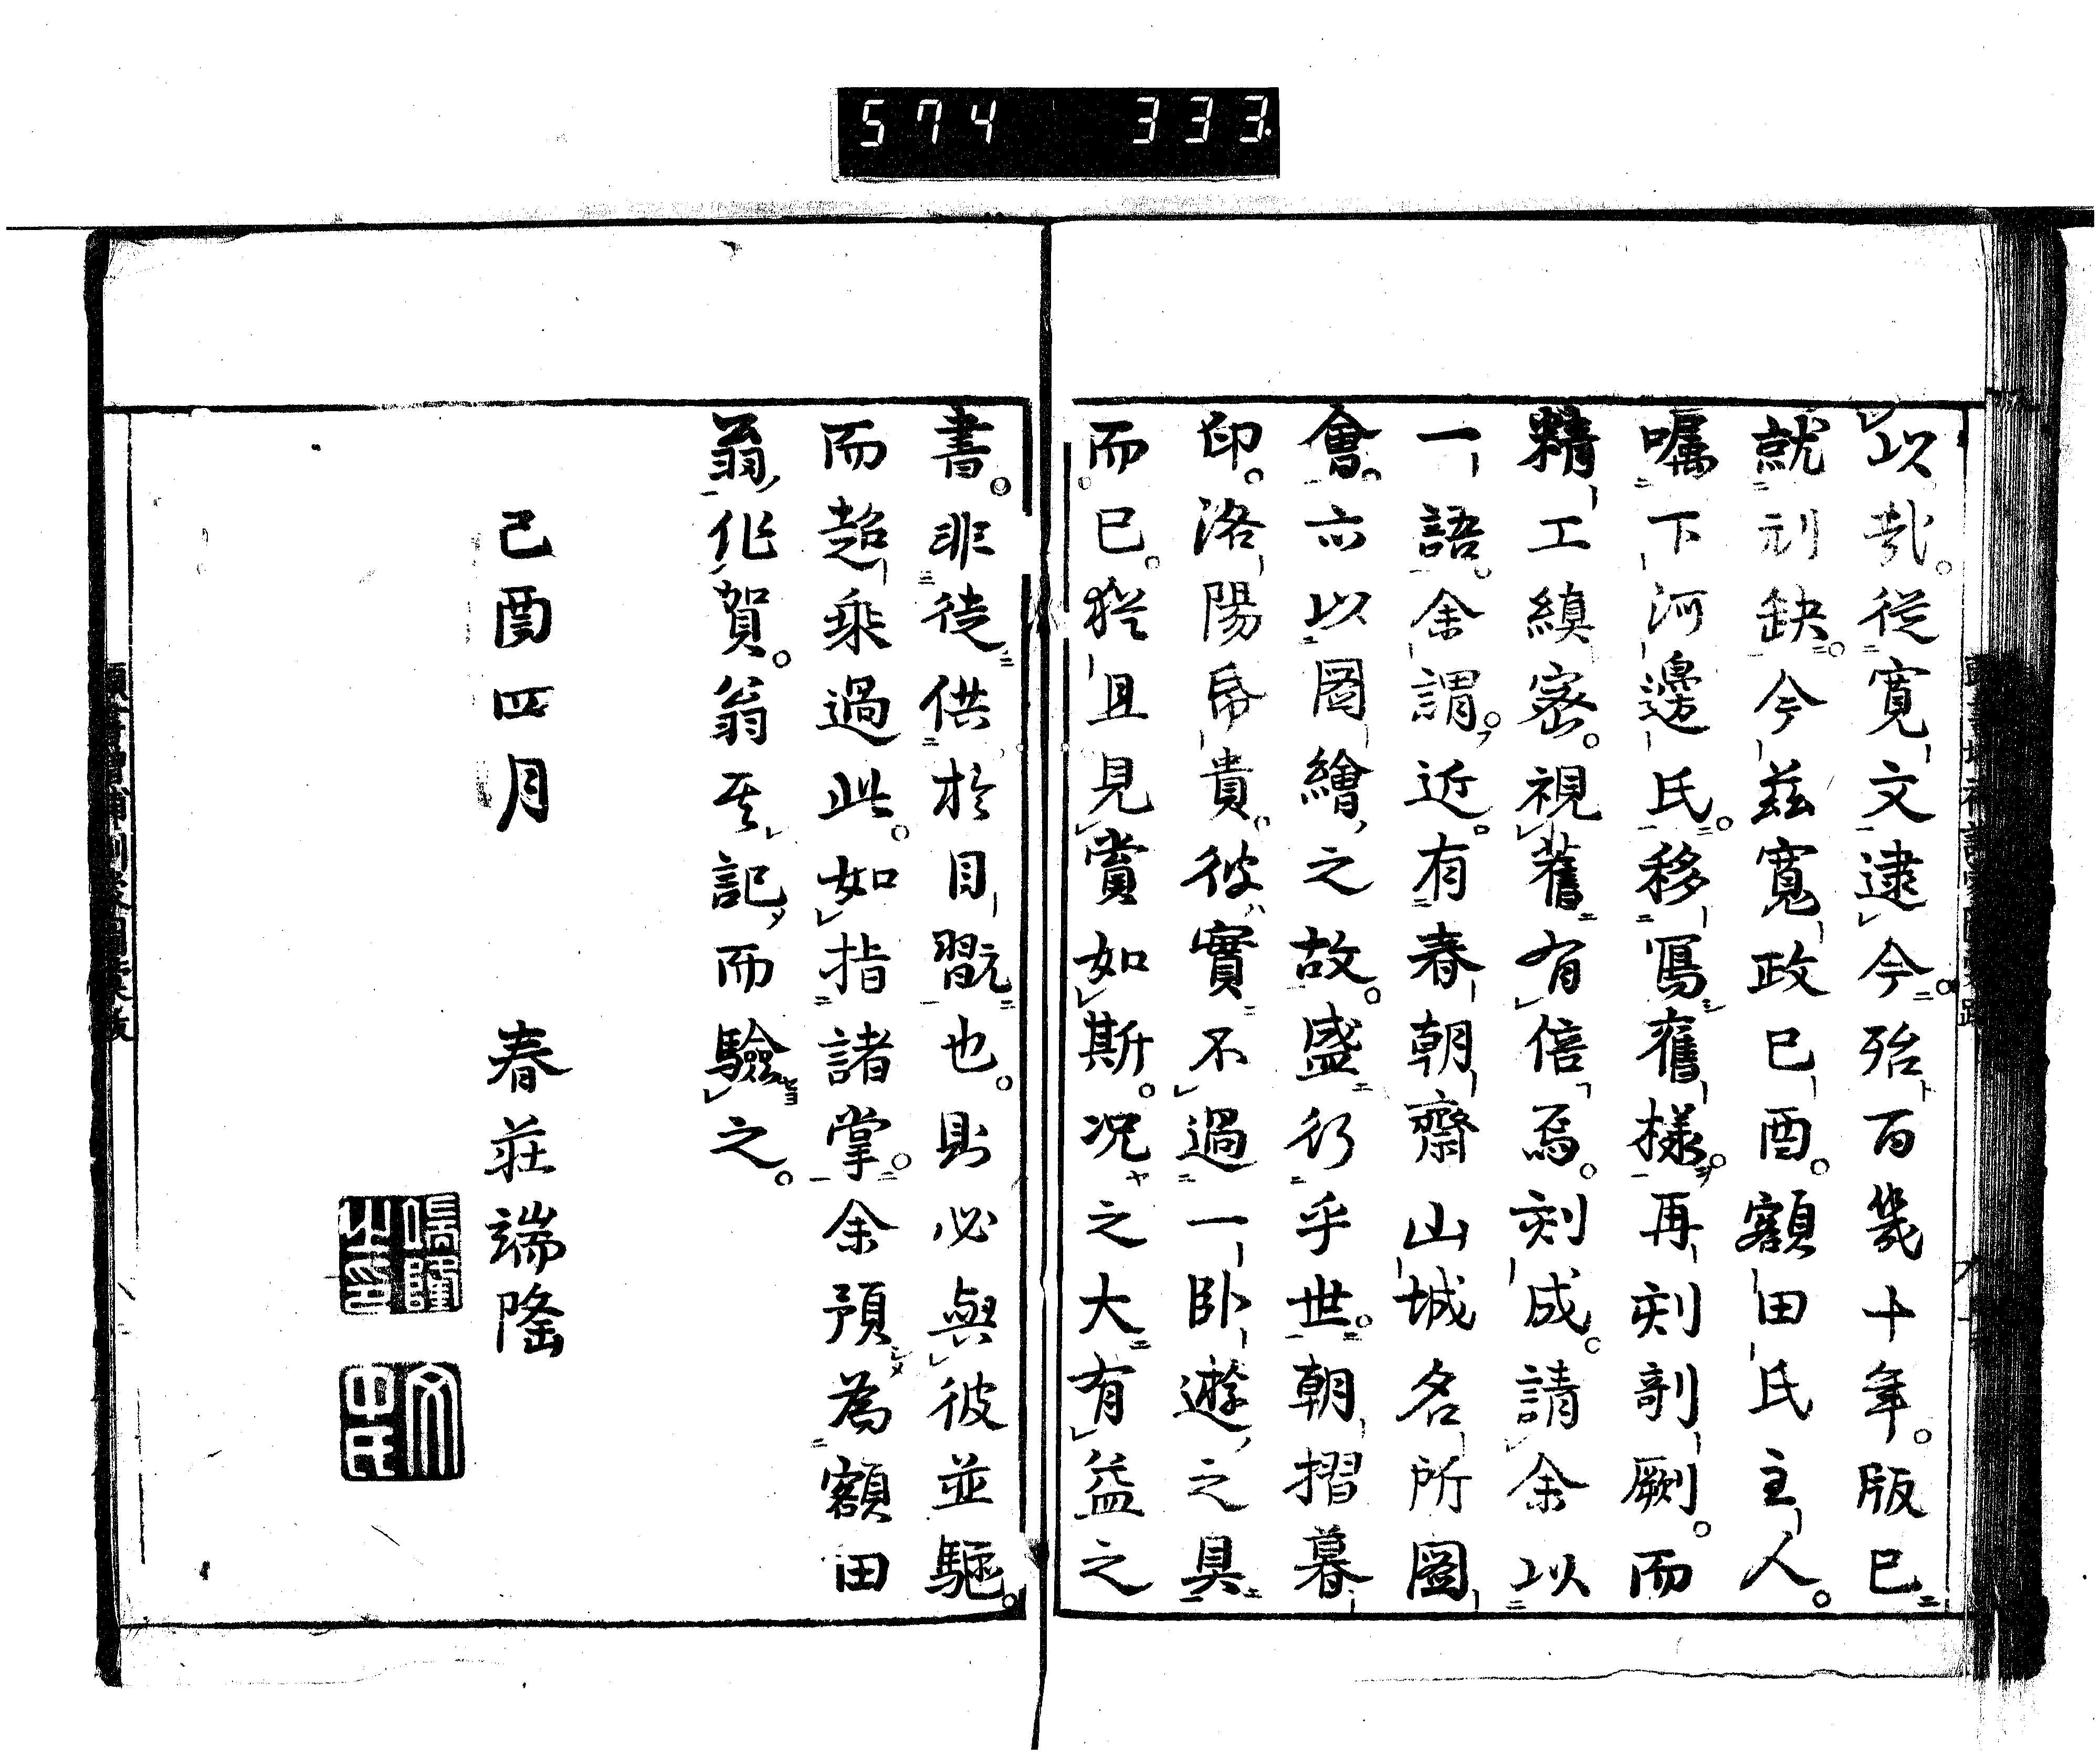 574 333
以哉。從寛文逮今。殆百幾十年。版已
就刓缺。今茲寬政己酉。額田氏主人。
囑下河邊氏。移寫舊樣。再刻剞劂。而
精工縝密。視舊有倍焉。刻成。請余以
一語。余謂。近有春朝齋山城名所圖
會。亦以圖繪之故。盛行乎世。朝摺暮
印。洛陽帋貴。彼實不過一臥遊之具
而已。猶且見賞如斯。况之大有益之
書。非徒供於目翫也。則必與彼並驅。
而超乘過此。如指諸掌。余預為額田
翁作賀。翁其記而驗之。
己酉四月　春莊端隆